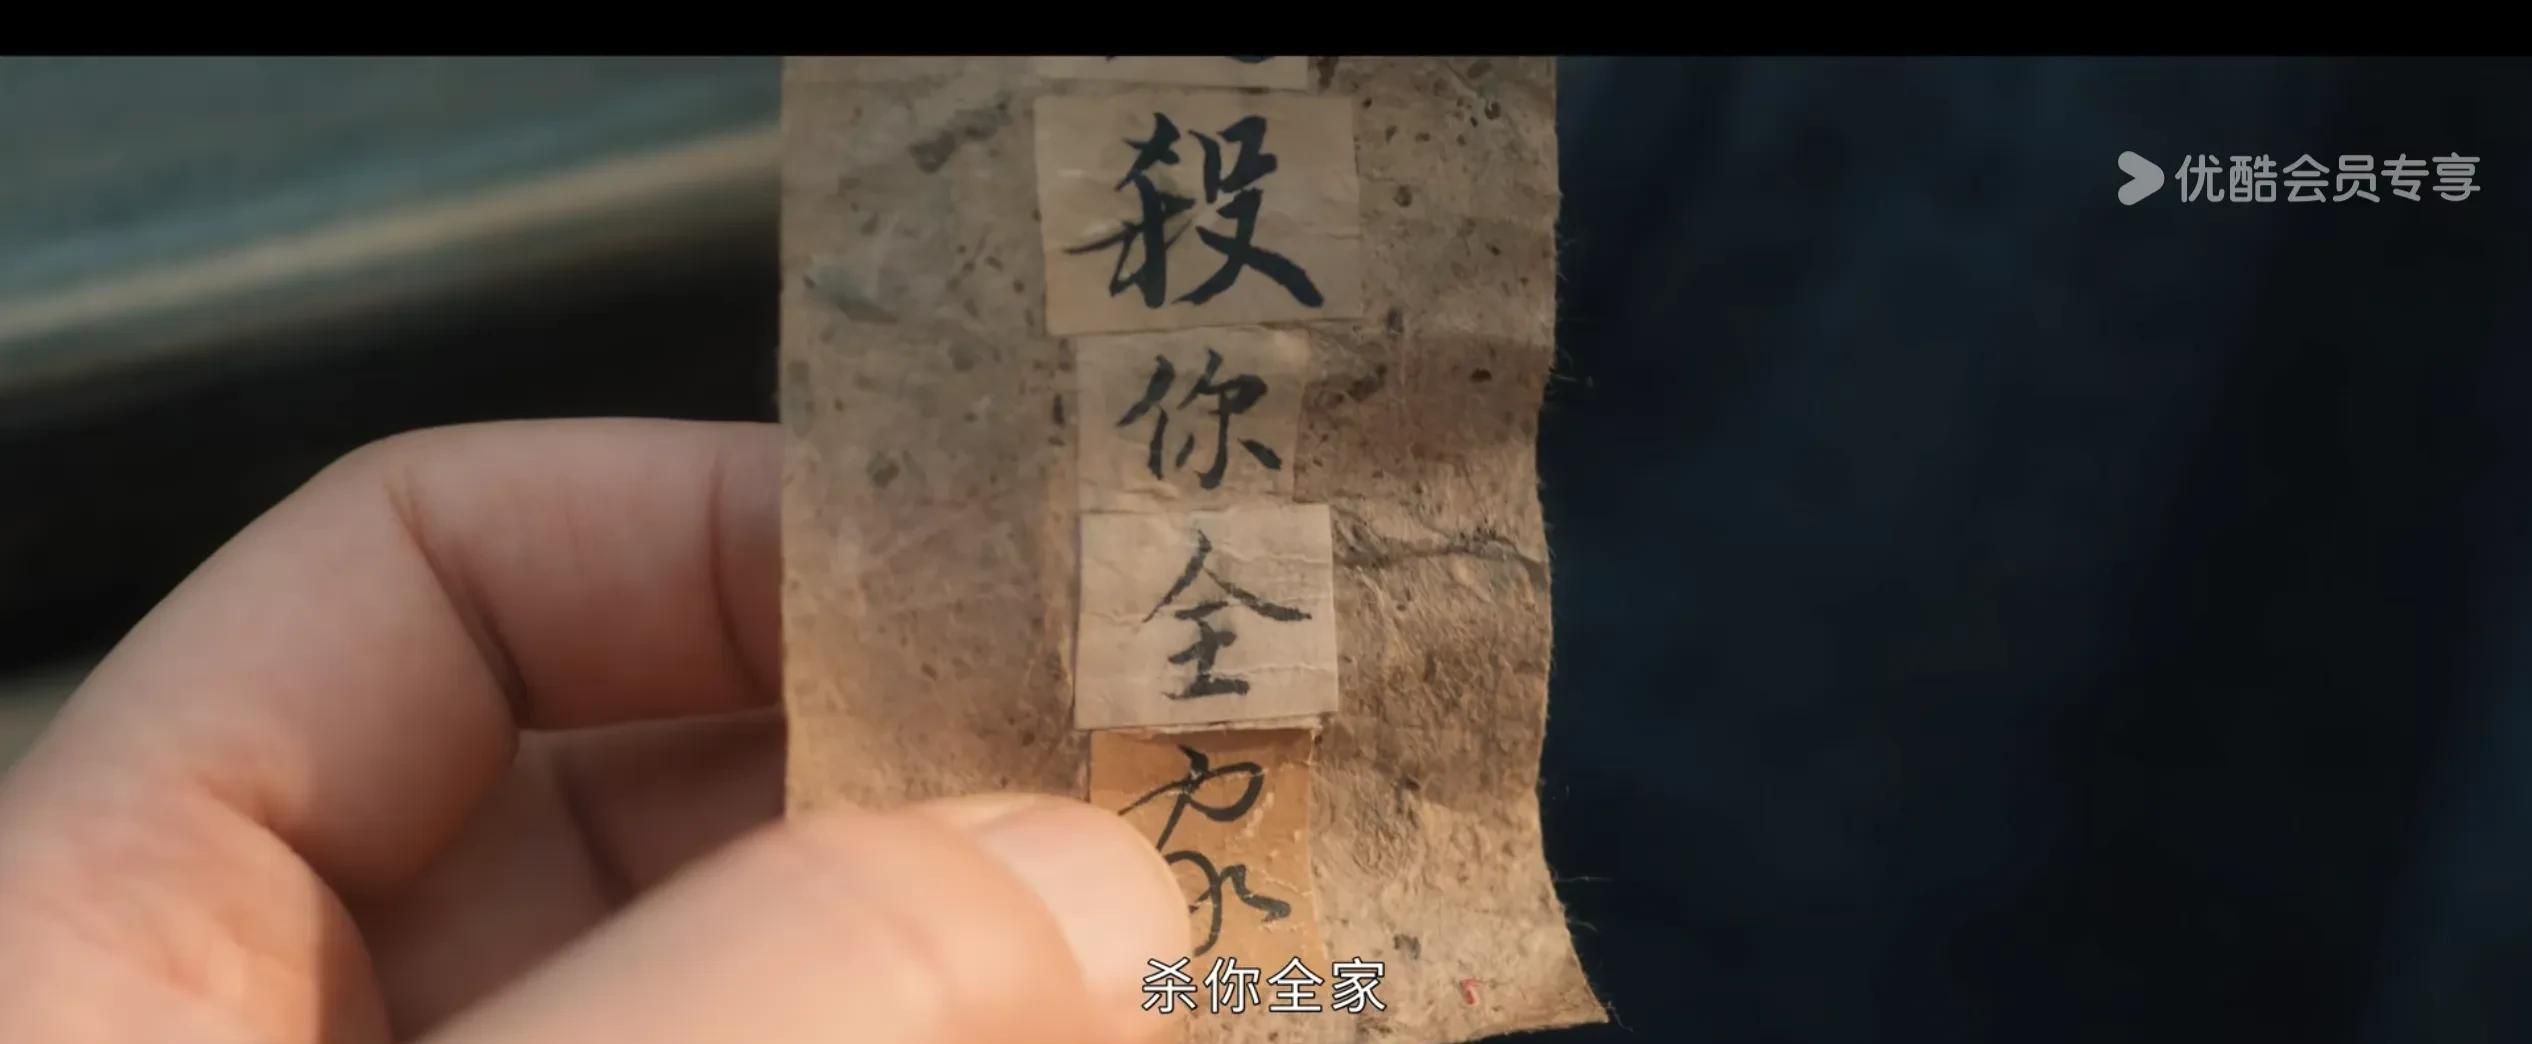 優酷会员专享
殺
你
全
家
杀你全家